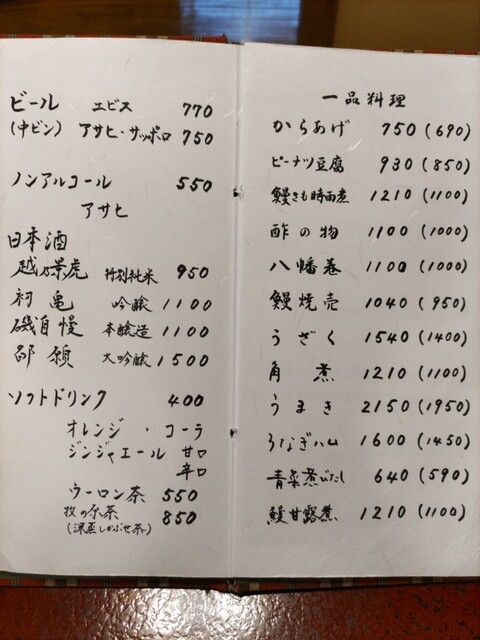 ビール エビス 770
(中ビン) アサヒ・サッポロ 750
ノンアルコール 550
アサヒ
日本酒
越乃景虎 特別純米 950
初亀 吟醸 1100
磯自慢 本醸造 1100
願 大吟醸 1500
ソフトドリンク 400
オレンジ・コーラ
ジンジャエール 甘口
辛口
ウーロン茶 550
牧の原茶 850
(深蒸しかぶせ茶)
一品料理
からあげ 750(690)
ピーナツ豆腐 930(850)
鰻きも時雨煮 1210(1100)
酢の物 1100(1000)
八幡巻 1100(1000)
鰻焼売 1040(950)
うざく 1540(1400)
角煮 1210(1100)
うまき 2150(1950)
うなぎハム 1600(1450)
青菜煮びたし 640(590)
鰻甘露煮 1210(1100)